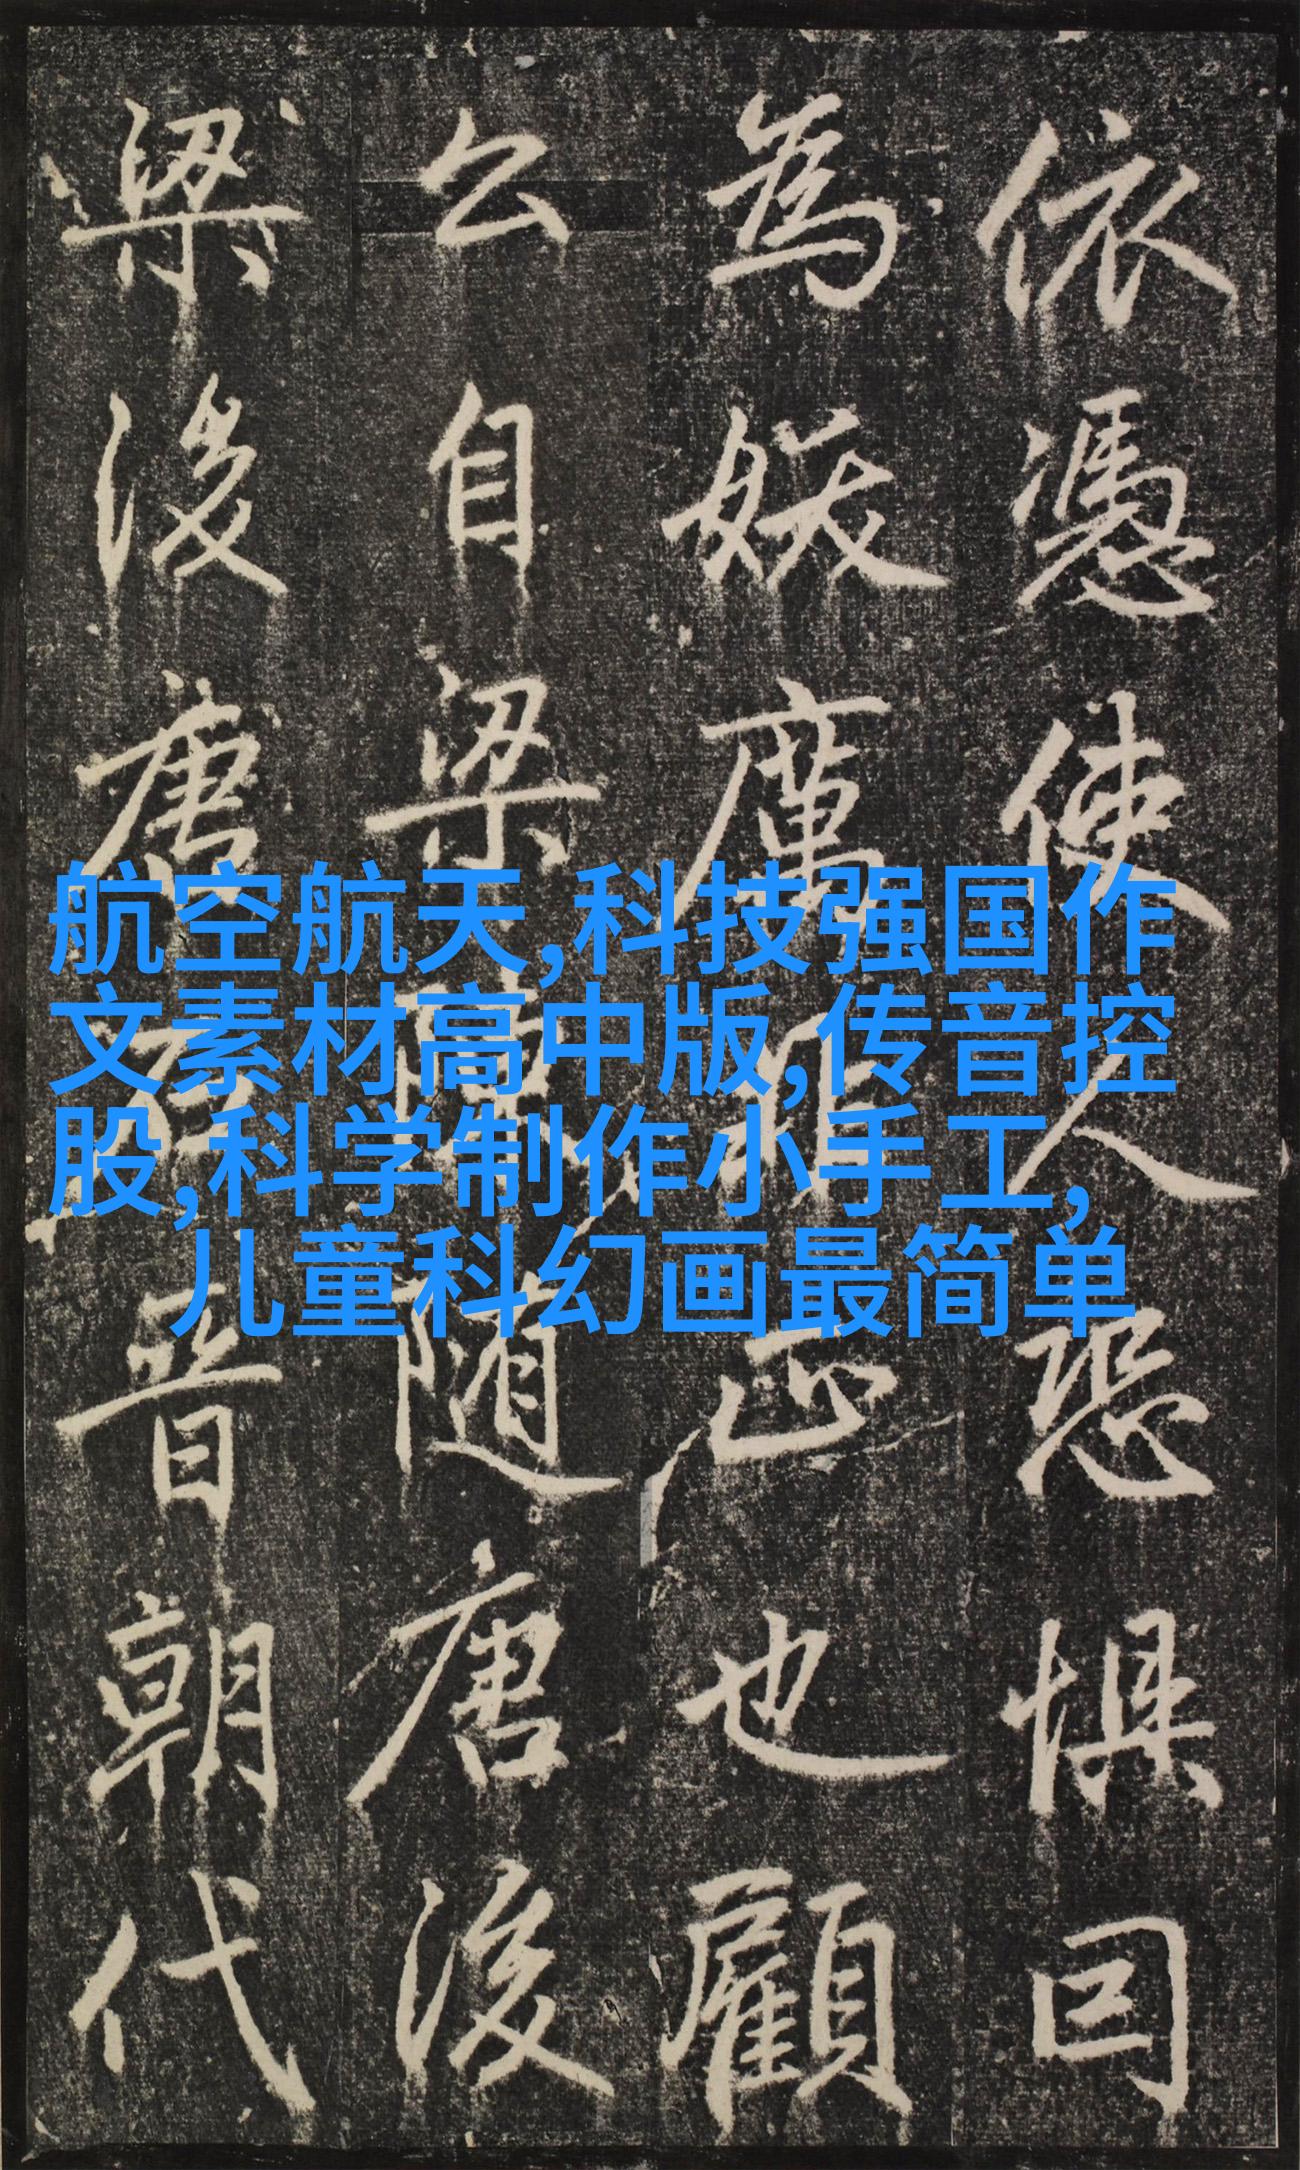 依憑使人恐懼
為妖厲非正也顧
公自梁陳随唐後
梁後唐晋朝代
航空航天,科技强国作
文素材高中版,传音控
股,科学制作小手工,
儿童科幻画最简单